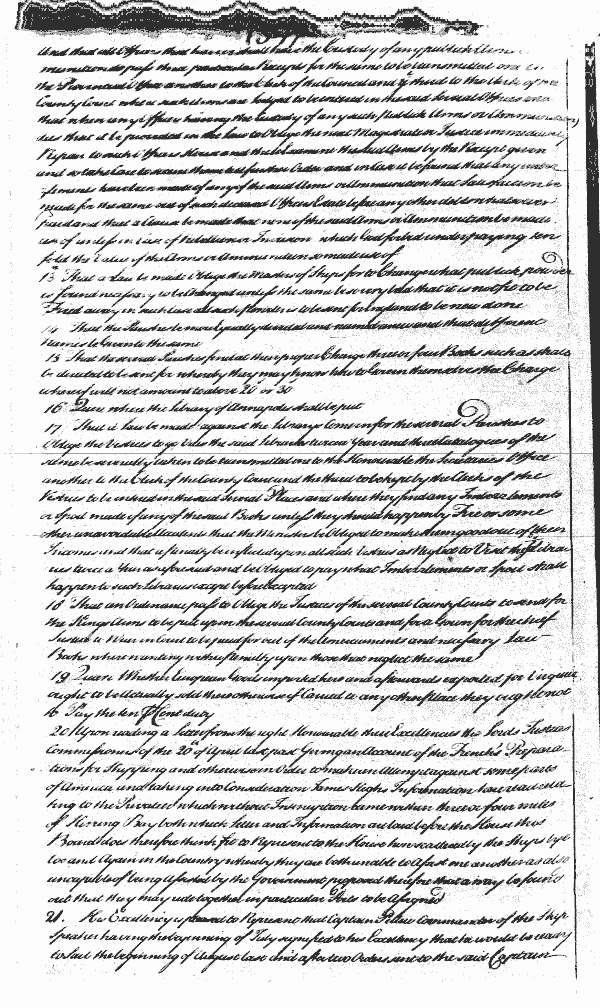 and that all Officers that have or shall have the Custody of any publick Arms
munition do pass their particular Receipts for the same to be transmitted one
the Provincial Office another to the Clerk of the Council and ye third to the Clerk of the
County Court where such Arms are lodged to be entred in the said several Offices and
that when any Officer having the Custody of any such Publick Arms or Ammunition
dies that it be provided in the Law to Oblige the next Magistrate or Justice immediately
Repair to such Officers House and there Examine the said Arms by the Receipt given
and so take Care to secure them till further Order and in Case it be found that any
been made of any of the said Arms or Ammunition that Satisfaccon be
made for the same out of such deceased Officers Estate before any other debts whatsoever
paid and that a Clause be made that none of the said Arms or Ammunition be made
use of unless in Case of Rebellion or Invasion which God forbid under paying ten
fold the Value of the Arms or Ammunition so made use of
13 That a Law be made Oblige the Masters of Ships for to Change what publick powder
is found necessary to be Changed unless the same be so very bad that it is not fit to be
Fired away in such Case all such powder is to be sent for England to be new done
14 That the Parishes be more Equally divided and named anew and that different
Names be given to the same
15 That the several Parishes find at their proper Charge three or four Books such as shall
be directed to be sent for whereby they may know how to Govern themselves the Charge
whereof will not amount to above 20 or 30
16 Quere where the Library of Annapolis shall be put
17 That a Law be made against the Library Come in for the several Parishes to
Oblige the Vestries to go View the said Libraries twice a Year and that Catalogues of the
same be severally taken to be transmitted one to the Honourable the Secretaries Office
another to the Clerk of the County Court and the third to be kept by the Clerks of the
Vestries to be entred in the said several Places and where they find any Imbezelements
or Spoil made of any of the said Books unless they should happen by Fire or some
other unavoidable accidents that the Minister be Obliged to make them good out of their
Incomes and that a penalty be inflicted upon all such Vestries as Neglect to Visit the Libra
ries twice a Year as aforesaid and be Obliged to pay what Imbezelements or Spoil shall
happen to such Libraries except before excepted
18 That an Ordinance pass to Oblige the Justices of the several County Courts to send for
the Kings Arms to be put up in the several County Courts and for a Gown for the chief
Justice to Wear in Court to be paid for out of the Amerciaments and necessary Law
Books where wanting with a Penalty upon those that neglect the same
19 Quere Whether European Goods imported here and afterwards exported for Virginia
ought to be actually sold there otherwise if Carried to any other Place they ought not
to Pay the ten P Cent duty
20 Upon reading a letter from the right Honourable their Excellencies the Lords Justices
Commissioners of the 20th of April last past Giving an Account of the French's Prepara
tions for Shipping and otherwise in Order to make an Attempt against some parts
of America and taking into Consideration James Highs Information here read rela
ting to the Privateer which without Interruption came within three or four miles
of Herring Bay both which Letter and Information are laid before the House this
Board does therefore think fit to Represent to the House how scatteredly the Ships lye
too and Again in the Country whereby they are both unable to Assist one another as also
uncapable of being Assisted by the Government proposed therefore that a way be found
out that they may ride together in particular Ports to be Assigned
21. His Excellency is pleased to Represent that Captain Commander of the Ship
Speaker having the beginning of July signifyed to his Excellency that he would be ready
to Sail the beginning of August last and after two Orders sent to the said Captain